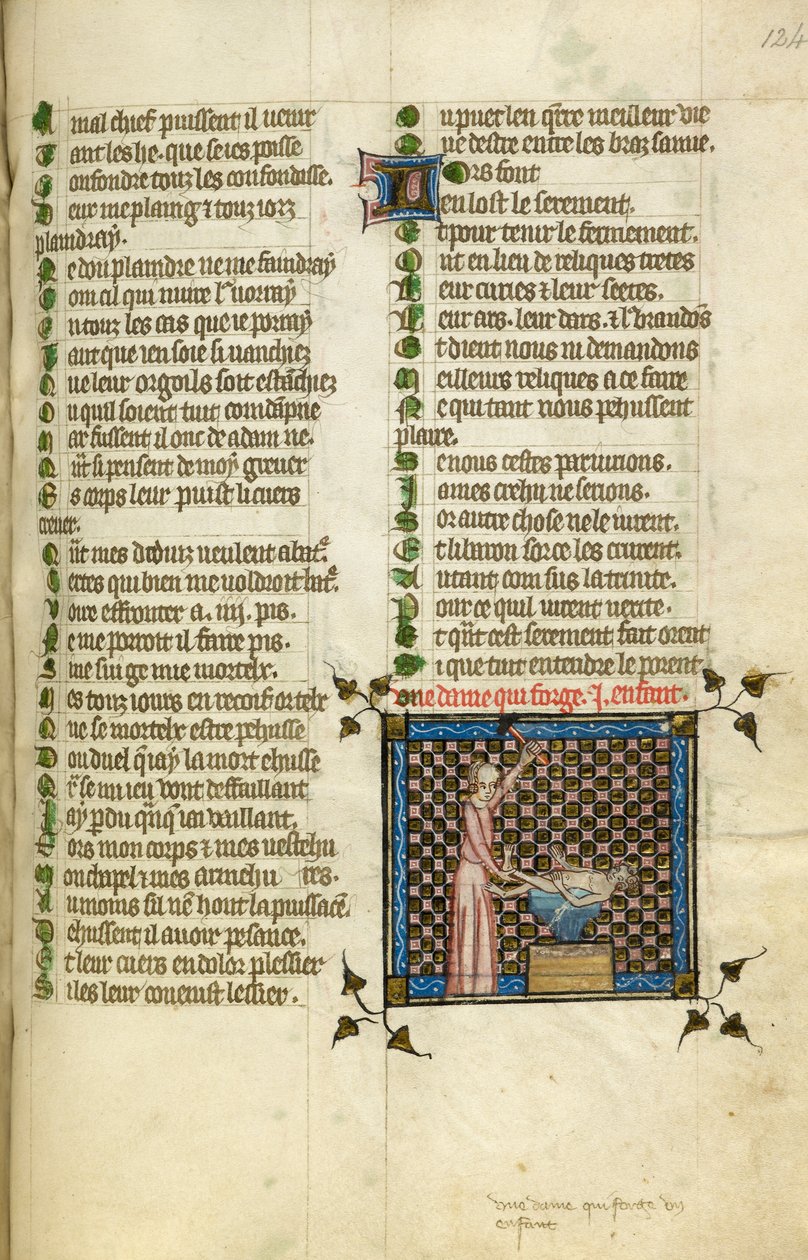 124
A mal chief puissent il venir
T ant les he. que se ies poisse
C onfondre touz les confondisse.
D eur me plaing & touz iorz
plaindray.
N e dou plaindre ne me faindray
C om cil qui nuire l' vorray
E n touz les cas que ie porray
T ant que ien soie si vanchiez
Q ue leur orgoils soit estanchiez
O u quil soient tuit comdampne
M ar fussent il onc de adam ne.
Q nt si pensent de moy grever
E s corps leur puist li cuers
crever.
Q nt mes deduiz veulent abatre
C ertes qui bien me voldroit batre.
V oire effronter a .iiij. pis.
N e me porroit il faire pis.
S i ne sui ge mie mortelx.
M es touz iours en recoif ortelx
Q ue se mortelx estre pehusse
D ou duel q iay la mort ehusse
Q r se mi ieu vont deffaillant
J ay pdu qnq iai vaillant.
F ors mon corps & mes vestehu
M on chapel & mes armehu res.
A u moins sil nen hont la puissace.
D ehussent il avoir pesance.
E t leur cuers en dolor plessier
S i les leur covenist lessier.
O u puet len qrre meilleur vie
Q ue destre entre les braz samie.
L Ors font
en lost le serement.
E t pour tenir le fermement.
O nt en lieu de reliques tretes
L eur curies & leur seetes.
L eur ars. leur dars. & l' brandons
E t dient nous ni demandons
M eilleurs reliques a ce faire
N e qui tant nous pehussent
plaire.
S e nous cestes pariurions.
J ames crehu ne serions.
S or autre chose ne le iurent.
E t li baron sor ce les crurent.
A utant com sus la trinite.
P our ce quil iurent verite.
E t qnt cest serement fait orent
S i que tuit entendre le porent
Vne dame qui forge .I. enfant.
vne dame qui forge vn
enfant